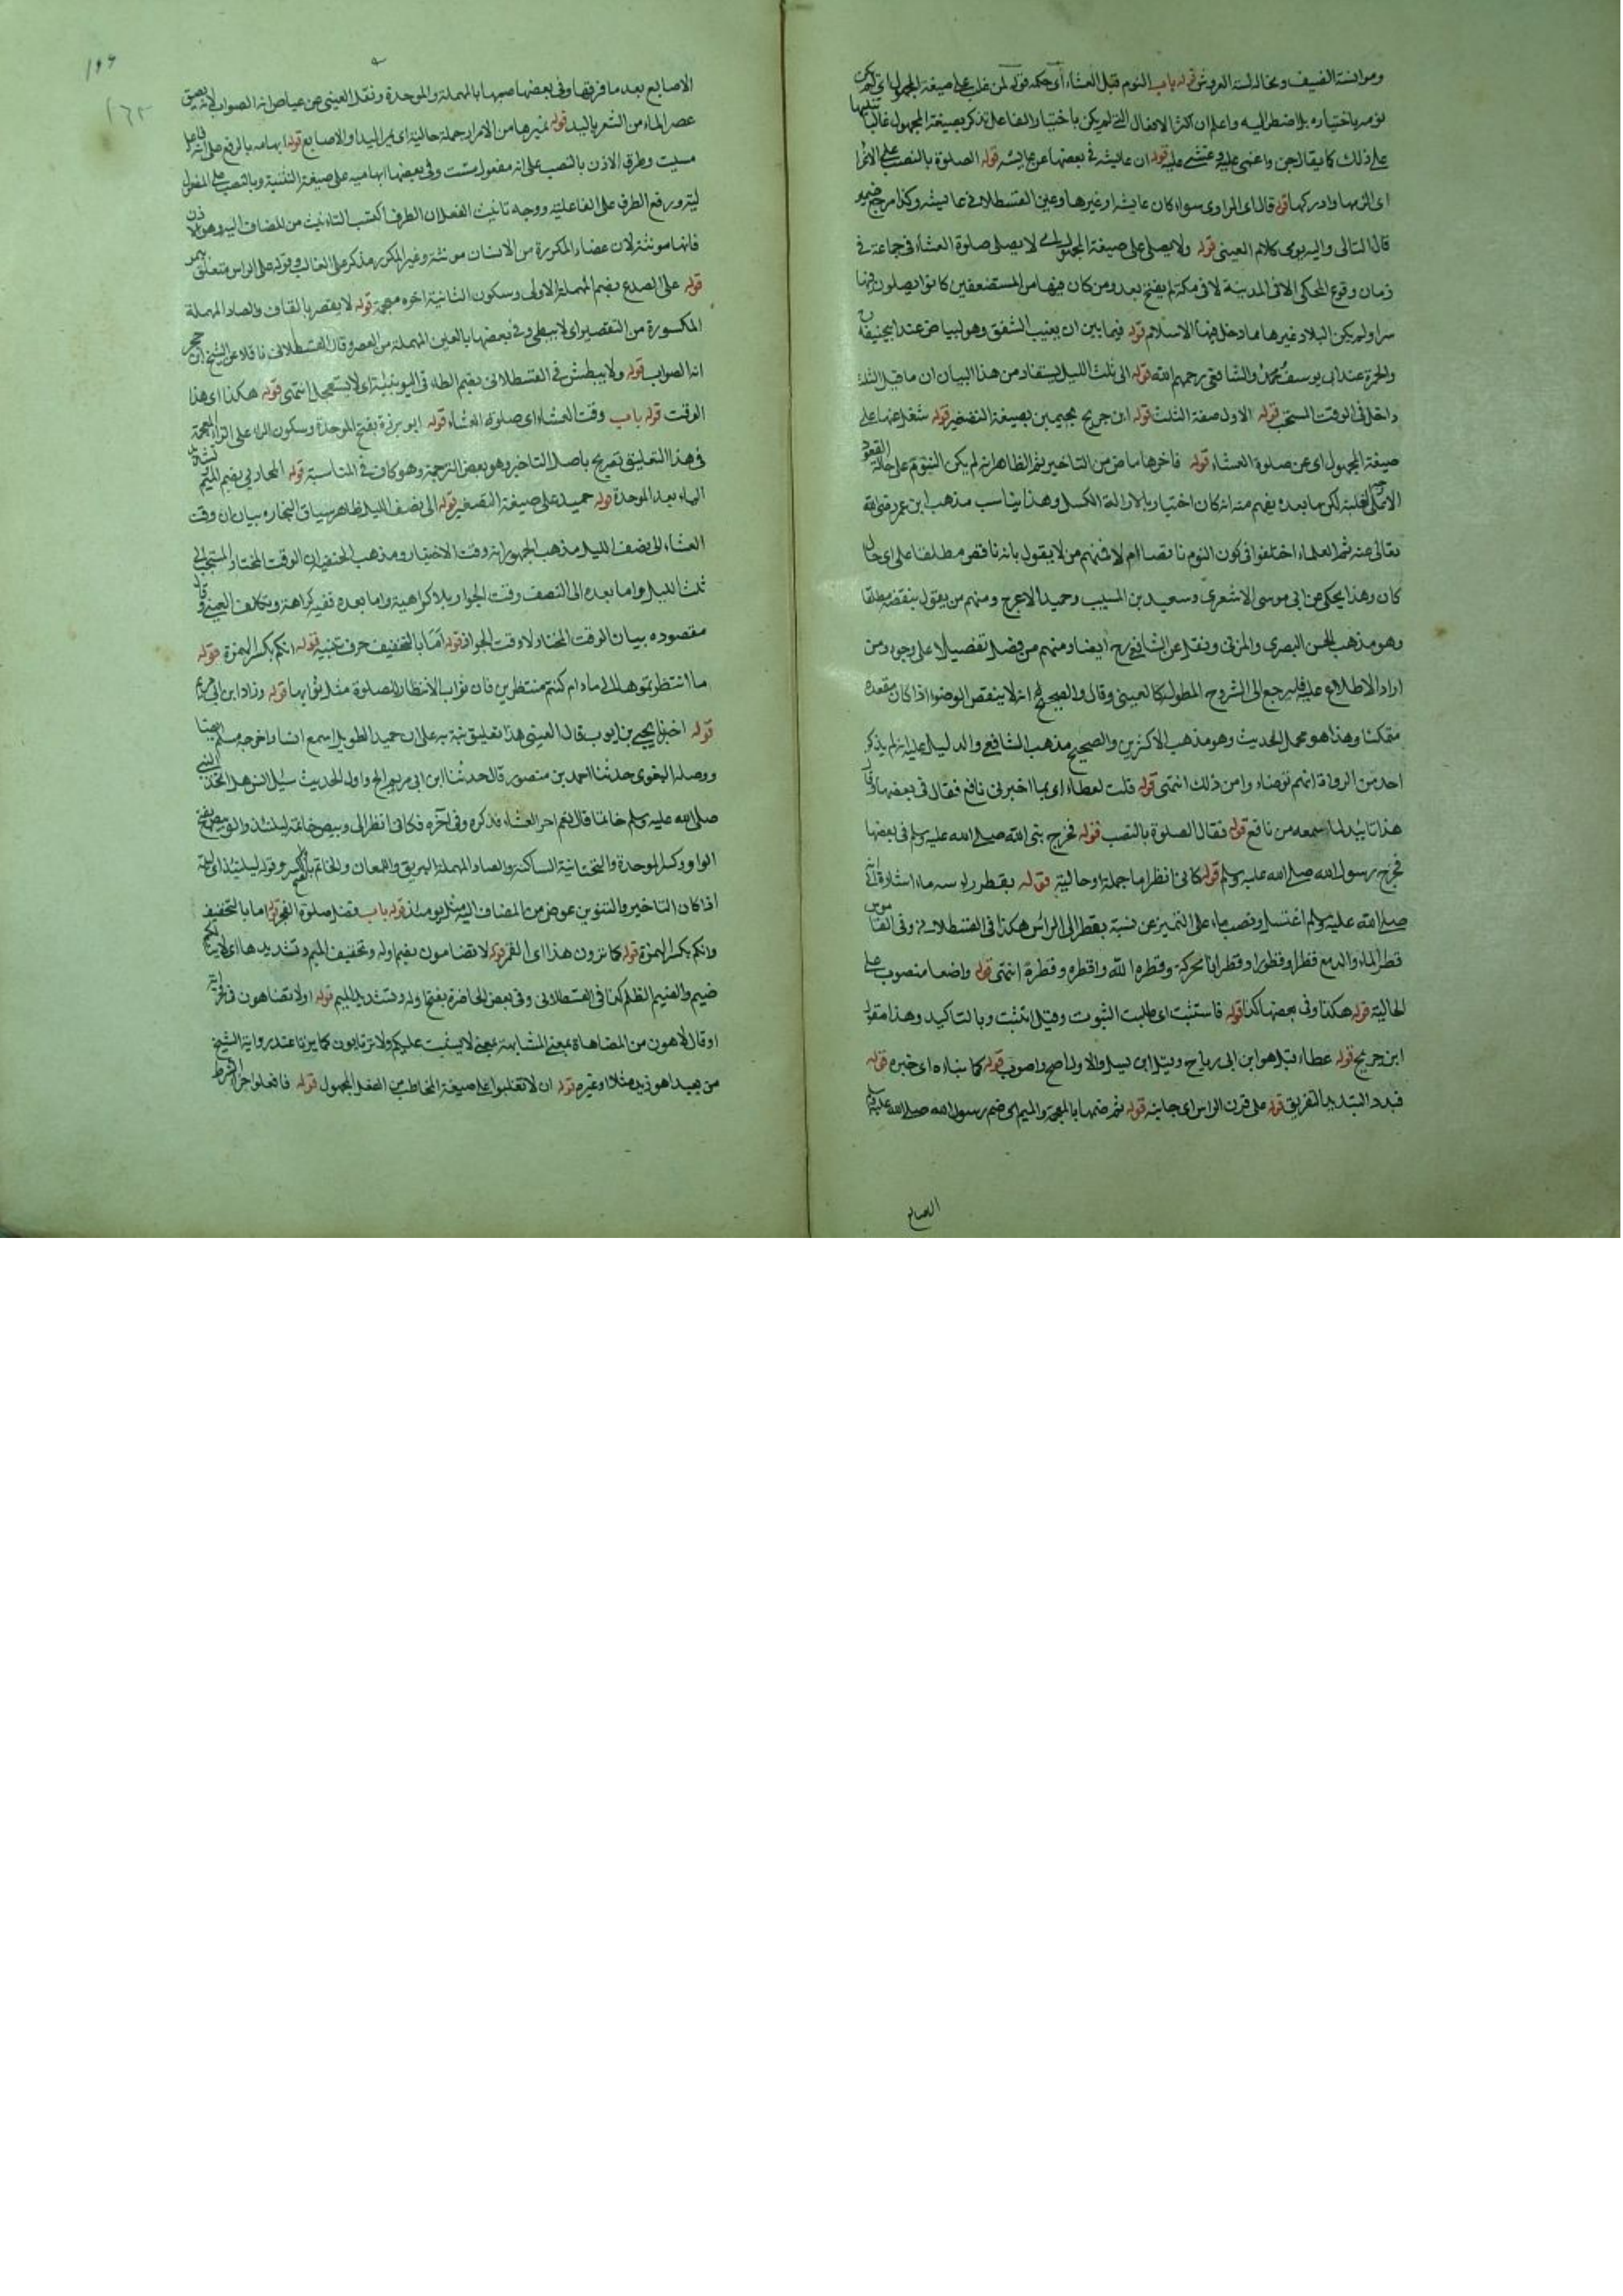 ومؤانسة الضيف ومخالسة العروش قوله باب النوم قبل العشاء أي حكمه قوله لمن غلب على صيغة المجهول اى لمن
نومه باختياره بل اضطر اليه واعلم ان اكثر الافعال التى لم يكن باختيار الفاعل تذكر بصيغة المجهول غالبا تنبيها
على ذلك كما يقال جن واغمى عليه وغشى عليه قوله ان عايشة فى بعضها عن عايشة قوله الصلوة بالنصب على الاغرا
اى الزمها وادركها قوله قال اى الراوى سواء كان عايشة او غيرها وعين القسطلانى عايشة وكذا مرجع ضمير
قال التالى واليه يومى كلام العينى قوله ولا يصلى على صيغة المجهول اى لا يصلى صلوة العشاء فى جماعة فى
زمان وقوع المحكى الا فى المدينة لا فى مكة لم يفتح بعد ومن كان فيها من المستضعفين كانوا يصلون فيها
سرا ولم يكن البلاد غيرها مما دخل فيها الاسلام قوله فيما بين ان يغيب الشفق وهو البياض عند ابى حنيفة
والحمرة عند ابى يوسف ومحمد والشافعى رحمهم الله قوله الى ثلث الليل يستفاد من هذا البيان ان ما قبل الثلث
داخل فى الوقت المستحب قوله الاول صفة الثلث قوله ابن جريج بجيمين بصيغة التصغير قوله شغل عنها على
صيغة المجهول اى عن صلوة العشاء قوله فاخرها ماض من التاخير ثم الظاهر انه لم يكن النوم على حالة القعود
الا على الغلبة لكن ما بعده يفهم منه انه كان اختياريا لازالة الكسل وهذا يناسب مذهب ابن عمر رضى الله
تعالى عنه ثم العلماء اختلفوا فى كون النوم ناقضا ام لا فمنهم من لا يقول بانه ناقض مطلقا على اى حال
كان وهذا يحكى عن ابى موسى الاشعرى وسعيد بن المسيب وحميد الاعرج ومنهم من يقول بنقضه مطلقا
وهو مذهب الحسن البصرى والمزنى ونقل عن الشافعى رح ايضا ومنهم من فصل تفصيلا على وجوه ومن
اراد الاطلاع عليه فليرجع الى الشروح المطولة كالعينى وقال والصحيح انه لا ينقض الوضوا اذا كان مقعده
متمكنا وهذا هو محمل الحديث وهو مذهب الاكثرين والصحيح مذهب الشافعى والدليل عليه انه لم يذكر
احد من الرواة انهم توضاء وا من ذلك انتهى قوله قلت لعطاء اى بما اخبرنى نافع فقال فى بعضها وقال
هذا تاييد لما سمعه من نافع قوله فقال الصلوة بالنصب قوله فخرج نبى الله صلى الله عليه وسلم فى بعضها
فخرج رسول الله صلى الله عليه وسلم قوله كانى انظر اما جملة او حالية قوله يقطر راسه ماء اشارة الى انه
صلى الله عليه وسلم اغتسل ونصب ماء على التميز عن نسبة يقطر الى الراس هكذا فى القسطلانى وفى القاموس
قطر الماء والدمع قطرا وقطورا وقطرانا محركة وقطره الله واقطره وقطرة انتهى قوله واضعا منصوب على
الحالية قوله هكذا وفى بعضها كذا قوله فاستثبت اى طلبت الثبوت وقيل اتثبت وبالتاكيد وهذا مقول
ابن جريج قوله عطاء قيل هو ابن ابى رباح وقيل ابن يسار والاول اصح واصوب قوله كما نباءه اى خبره قوله
فبدد التبديد التفريق قوله على قرن الراس اى جانبه قوله ثم ضمها بالمعجمة والميم اى ضم رسول الله صلى الله عليه وسلم
الاصابع
الاصابع بعد ما فرقها وفى بعضها صبها بالمهملة والموحدة ونقل العينى عن عياض انه الصواب لانه يصف
عصر الماء من الشعر باليد قوله يمرها من الامرار جملة حالية اى يمر اليد او الاصابع قوله ابهامه بالرفع على انه فاعل
مسّت وطرف الاذن بالنصب على انه مفعول مسّت وفى بعضها ابهاميه على صيغة التثنية وبالنصب على المفعول
ليّة ورفع الطرف على الفاعلية ووجه تانيث الفعل ان الطرف اكتسب التانيث من المضاف اليه وهو الاذن
فانها مونثة لان عضاء المكررة من الانسان مونثة وغير المكرر مذكر على الغالب وقوله على الراس متعلق بيمر
قوله على الصدغ بضم المهملة الاولى وسكون الثانية اخره معجمة قوله لا يقصر بالقاف والصاد المهملة
المكسورة من التقصير اى لا يبطى وفى بعضها بالعين المهملة من العصر وقال القسطلانى ناقلا عن الشيخ ابن حجر
انه الصواب قوله ولا يبطش فى القسطلانى بضم الطاء فى اليونينية اى لا يستعجل انتهى قوله هكذا اى هذا
الوقت قوله باب وقت العشاء اى صلوة العشاء قوله ابو برزة بفتح الموحدة وسكون الراء على الزاء المعجمة
فى هذا التعليق تصريح باصل التاخير وهو بعض الترجمة وهو كاف فى المناسبة قوله المحاربى بضم الميم
الهاء بعد الموحدة قوله حميد على صيغة التصغير قوله الى نصف الليل ظاهر سياق البخارى بيان ان وقت
العشاء الى نصف الليل مذهب الجمهور انه وقت الاختيار ومذهب الحنفية ان الوقت المختار المستحب الى
ثلث الليل واما بعده الى النصف وقت الجواز بلا كراهية واما بعده ففيه كراهة وتكلف العينى وقال
مقصوده بيان الوقت المختار لا وقت الجواز قوله اَمَا بالتخفيف حرف تنبيه قوله انكم بكسر الهمزة قوله
ما انتظرتموها اى ما دام كنتم منتظرين فان ثواب الانتظار للصلوة مثل ثوابها قوله وزاد ابن ابى مريم
قوله اخبرنا يحيى بن ايوب قال العينى هذا تعليق نبه به على ان حميد الطويل سمع انسا واخرجه مسلم ايضا
ووصله البغوى حدثنا احمد بن منصور قال حدثنا ابن ابى مريم الخ واول الحديث سئل انس هل اتخذ النبى
صلى الله عليه وسلم خاتما قال نعم اخر العشاء فذكره وفى آخره فكانى انظر الى وبيص خاتمه ليلتئذ والوبيص بفتح
الواو وكسر الموحدة والتحتانية الساكنة والصاد المهملة البريق واللمعان والخاتم بالكسر والفتح وقوله ليلتئذ اى ليلة
اذا كان التاخير والتنوين عوض من المضاف اليه مثل يومئذ قوله باب فضل صلوة الفجر قوله اما بالتخفيف
وانكم بكسر الهمزة قوله كما ترون هذا اى القمر قوله لا تضامون بضم اوله وتخفيف الميم وتشديدها اى لا ينالكم
ضيم والضيم الظلم كذا فى القسطلانى وفى بعض الحاضرة بفتح اوله وتشديد الميم قوله او لا تضاهون فى اخرى انه
او قال لا هون من المضاهاة بمعنى المشابهة بمعنى لا يشبت عليكم ولا ترتابون كما يرتاب عند رواية الشيخ
من بعيد اهو زيد مثلا او غيره قوله ان لا تغلبوا على صيغة المخاطب من الفعل المجهول قوله فافعلوا جزاء الشرط